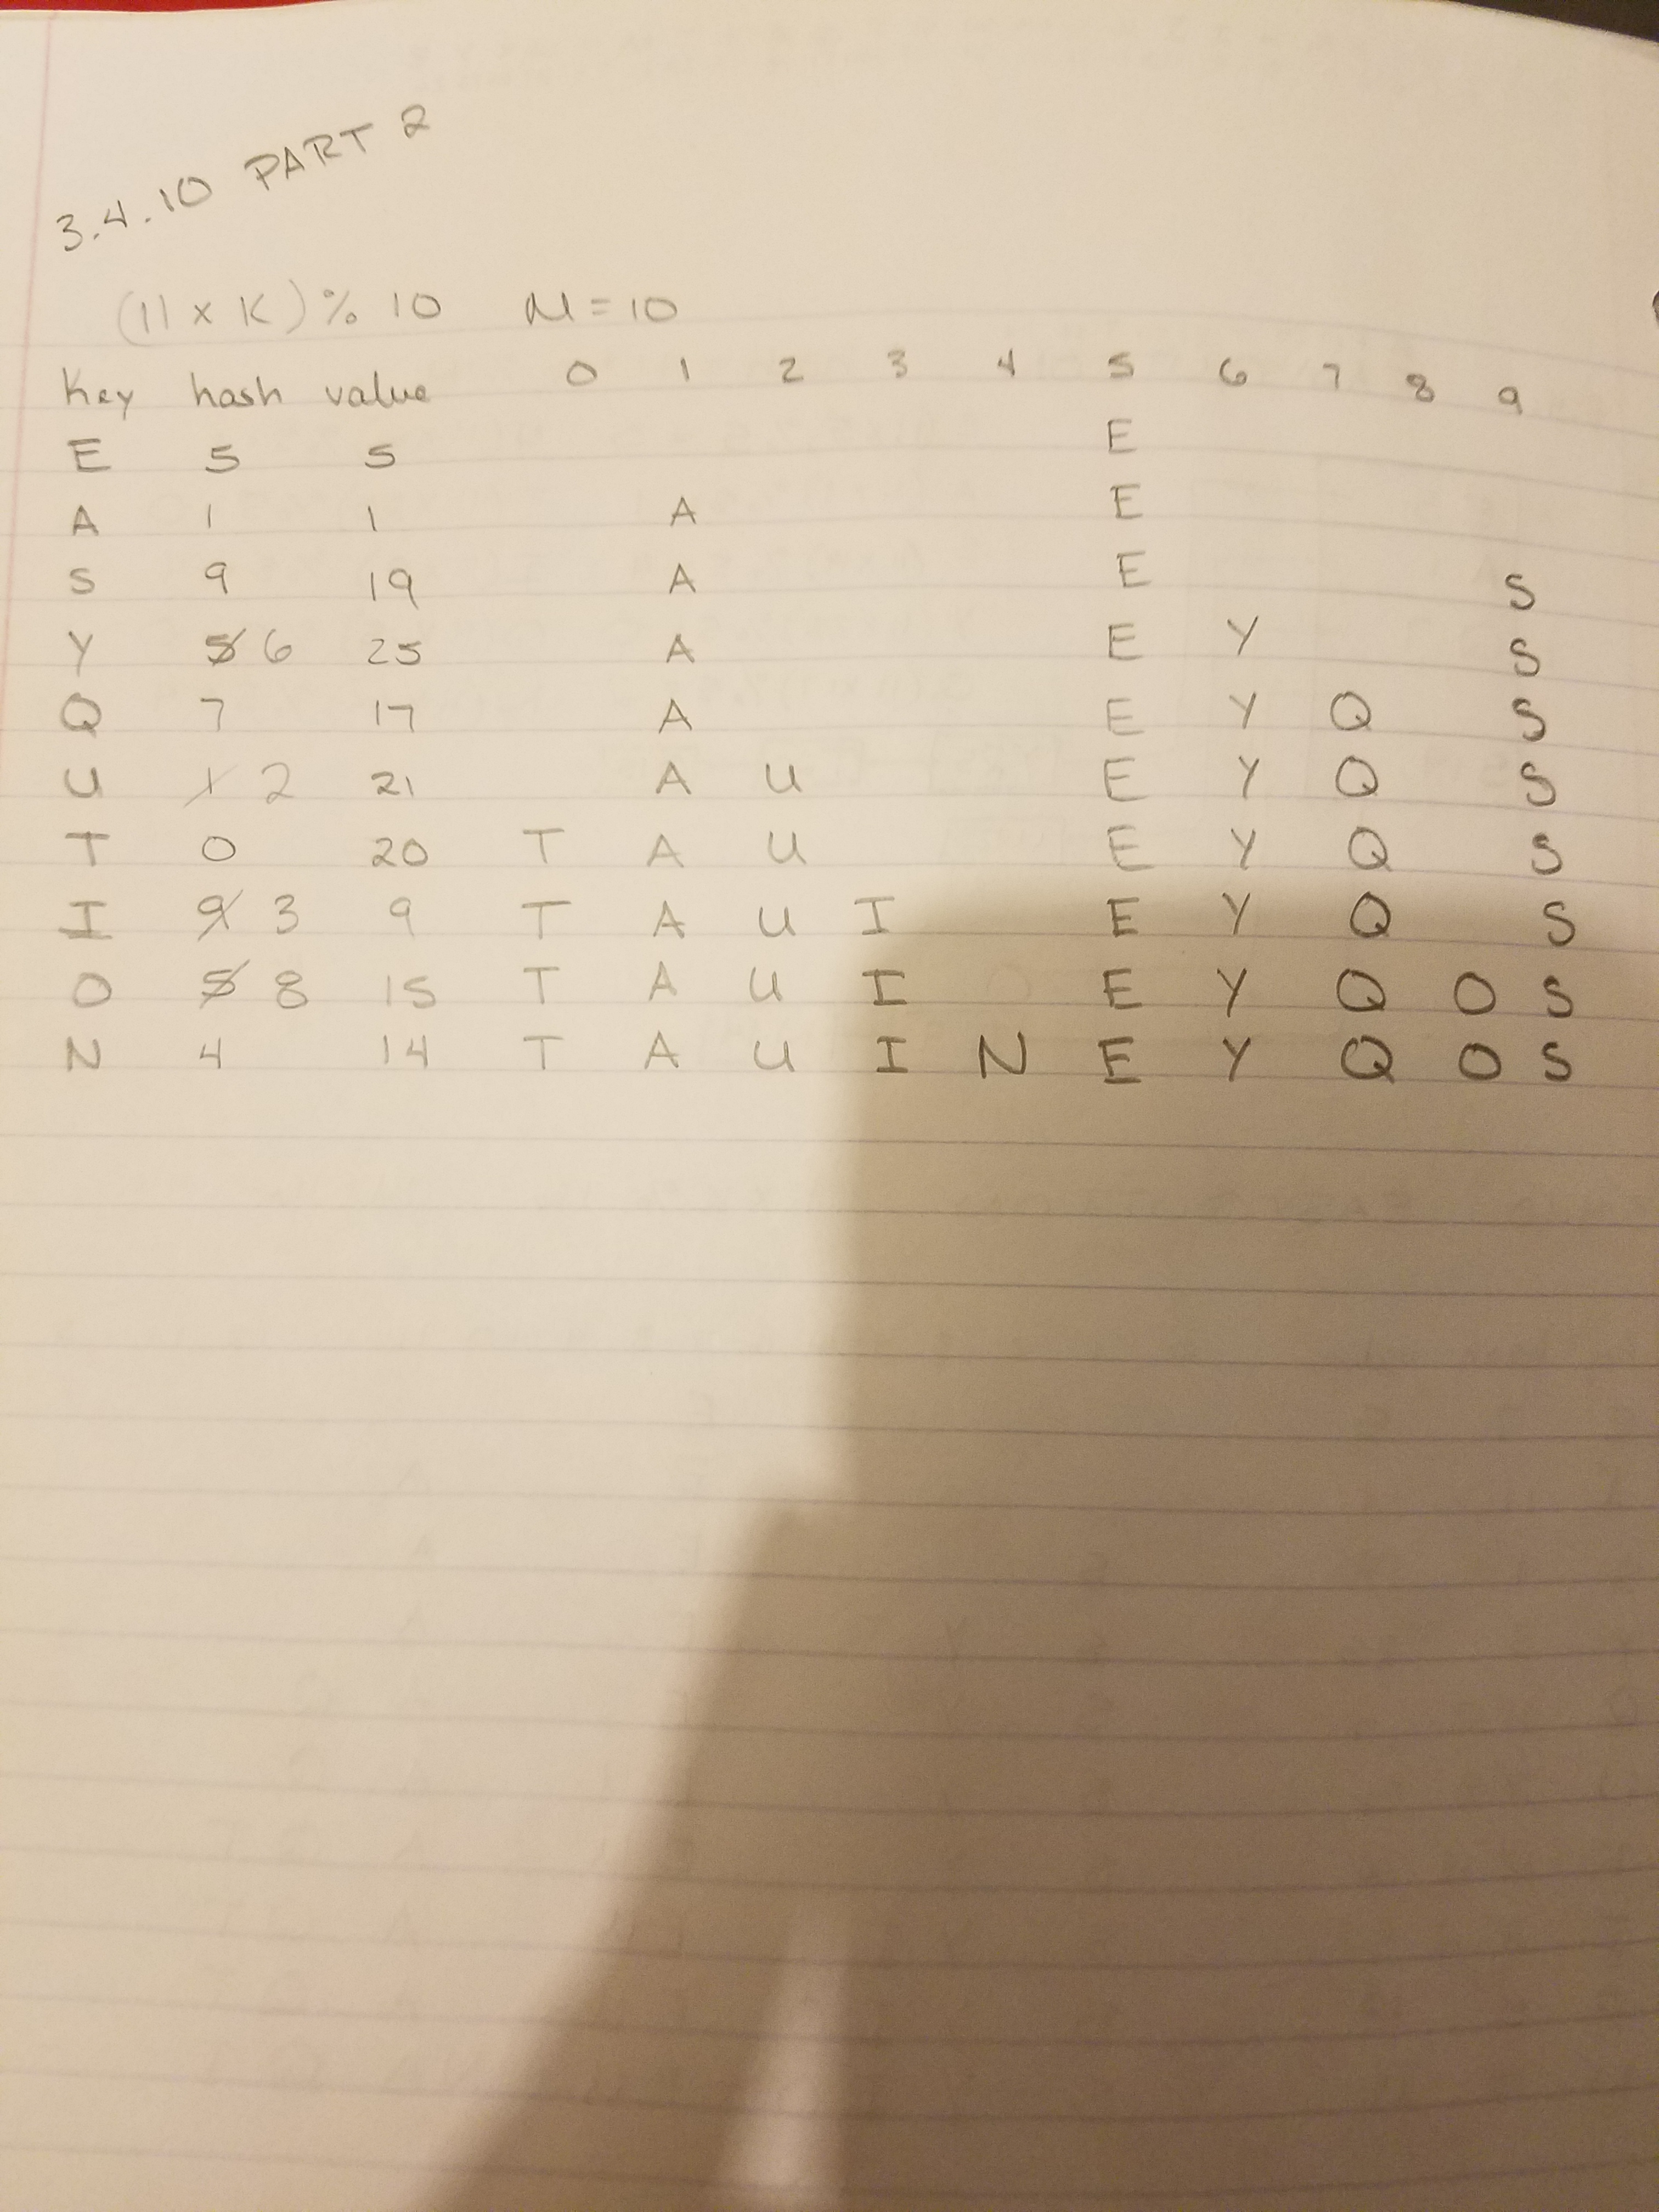 3.4.10 PART 2
(11 x K) % 10 M = 10
Key hash value 0 1 2 3 4 5 6 7 8 9
E 5 5 E
A 1 1 A E
S 9 19 A E S
Y 5 6 25 A E Y S
Q 7 17 A E Y Q S
U 1 2 21 A U E Y Q S
T 0 20 T A U E Y Q S
I 9 3 9 T A U I E Y Q S
O 5 8 15 T A U I E Y Q O S
N 4 14 T A U I N E Y Q O S